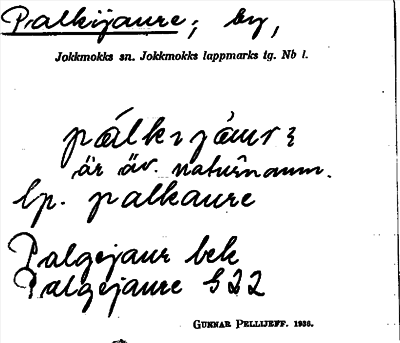 Palkijaure; by,
Jokkmokks sn. Jokkmokks lappmarks tg. Nb l.
är äv. naturnamn.
lp. palkaure
Palgejaur bek
Palgejaure G22
GUNNAR PELLIJEFF. 1938.